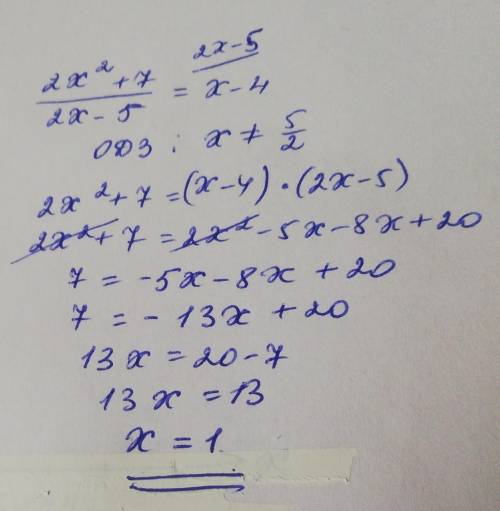 2x-5
(2x² + 7)/(2x - 5) = x - 4
ОДЗ : x ≠ 5/2
2x² + 7 = (x - 4) · (2x - 5)
2x² + 7 = 2x² - 5x - 8x + 20
7 = -5x - 8x + 20
7 = - 13x + 20
13x = 20 - 7
13x = 13
x = 1